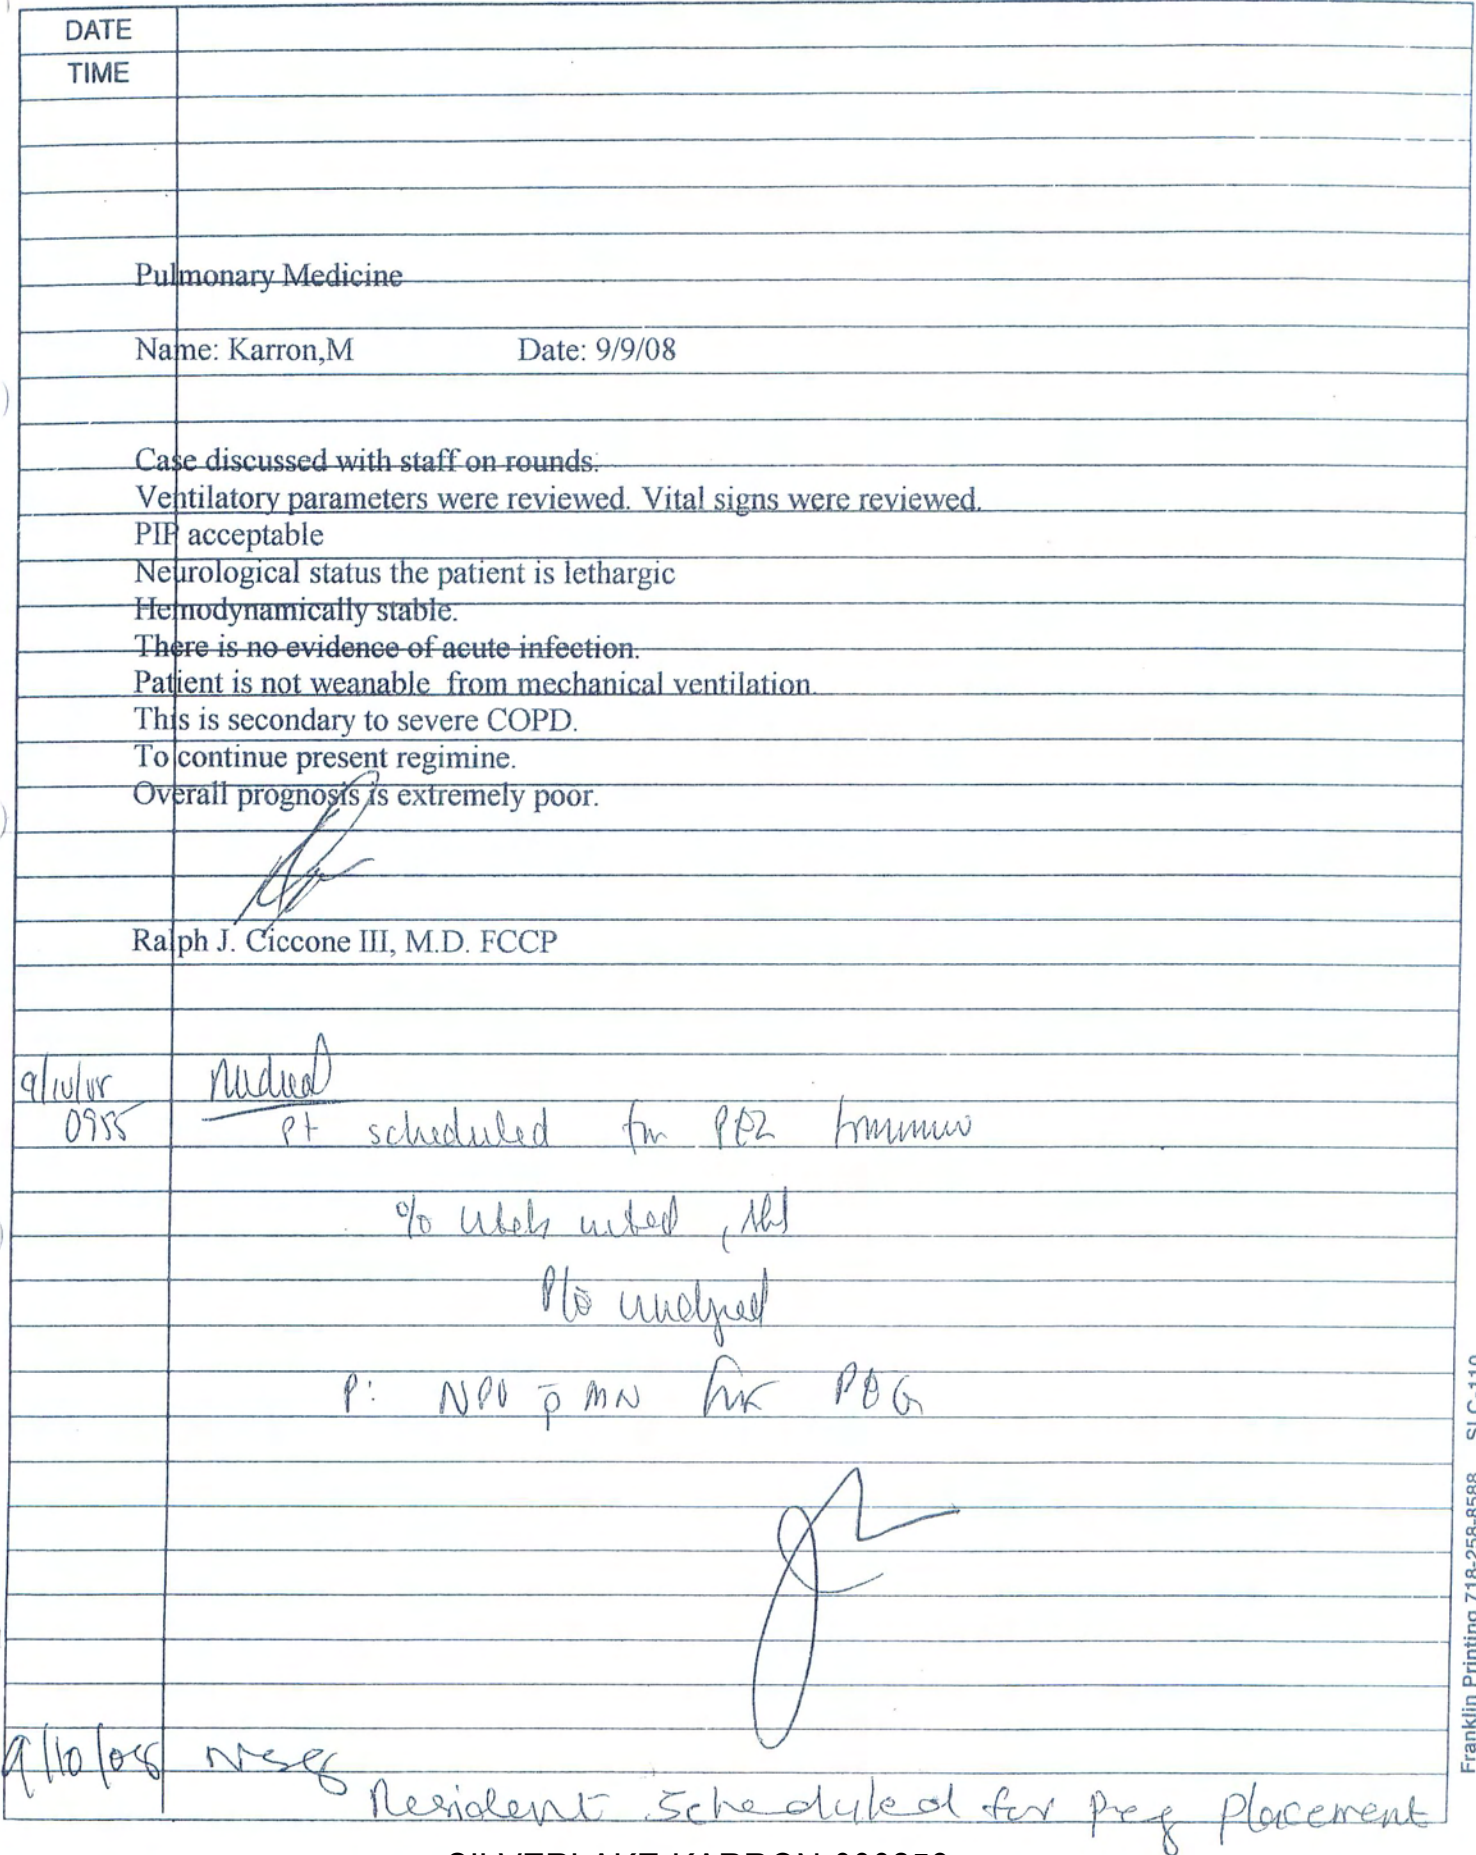 DATE
TIME
Pulmonary Medicine
Name: Karron,M Date: 9/9/08
Case discussed with staff on rounds.
Ventilatory parameters were reviewed. Vital signs were reviewed.
PIP acceptable
Neurological status the patient is lethargic
Hemodynamically stable.
There is no evidence of acute infection.
Patient is not weanable from mechanical ventilation.
This is secondary to severe COPD.
To continue present regimine.
Overall prognosis is extremely poor.
Ralph J. Ciccone III, M.D. FCCP
9/10/08 Medical
0955 Pt scheduled for PEG
P: NPO p̄ MN for PEG
9/10/08 Nsg
Resident Scheduled for Peg placement
Franklin Printing 718-258-8588 SLC-110